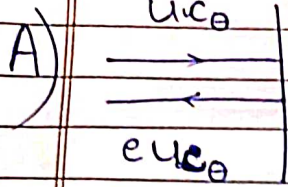 A)
ucθ
eucθ